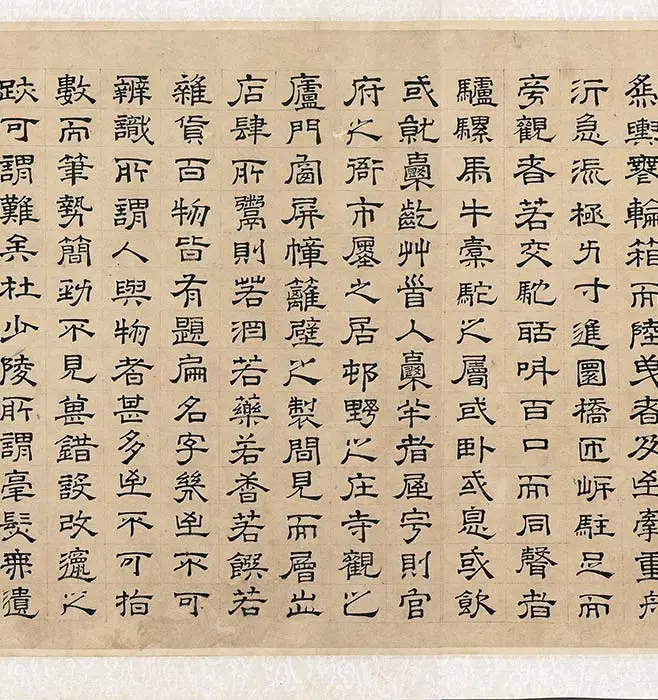 輿輪箱而陸曳者及至牽重舟
泝急流極力寸進圜橋匝岸駐足而
旁觀者若交馳聒叫百口而同聲者
驢騾馬牛橐駝之屬或臥或息或飲
或就囊齕艸首入囊半者屋宇則官
府之衙市廛之居邨野之庄寺觀之
廬門窗屏幛籬壁之製間見而層出
店肆所鬻則若酒若藥若香若饌若
雜貨百物皆有題扁名字幾至不可
辨識所謂人與物者甚多至不可指
數而筆勢簡勁不見其錯誤改竄之
跡可謂難矣杜少陵所謂毫髮無遺